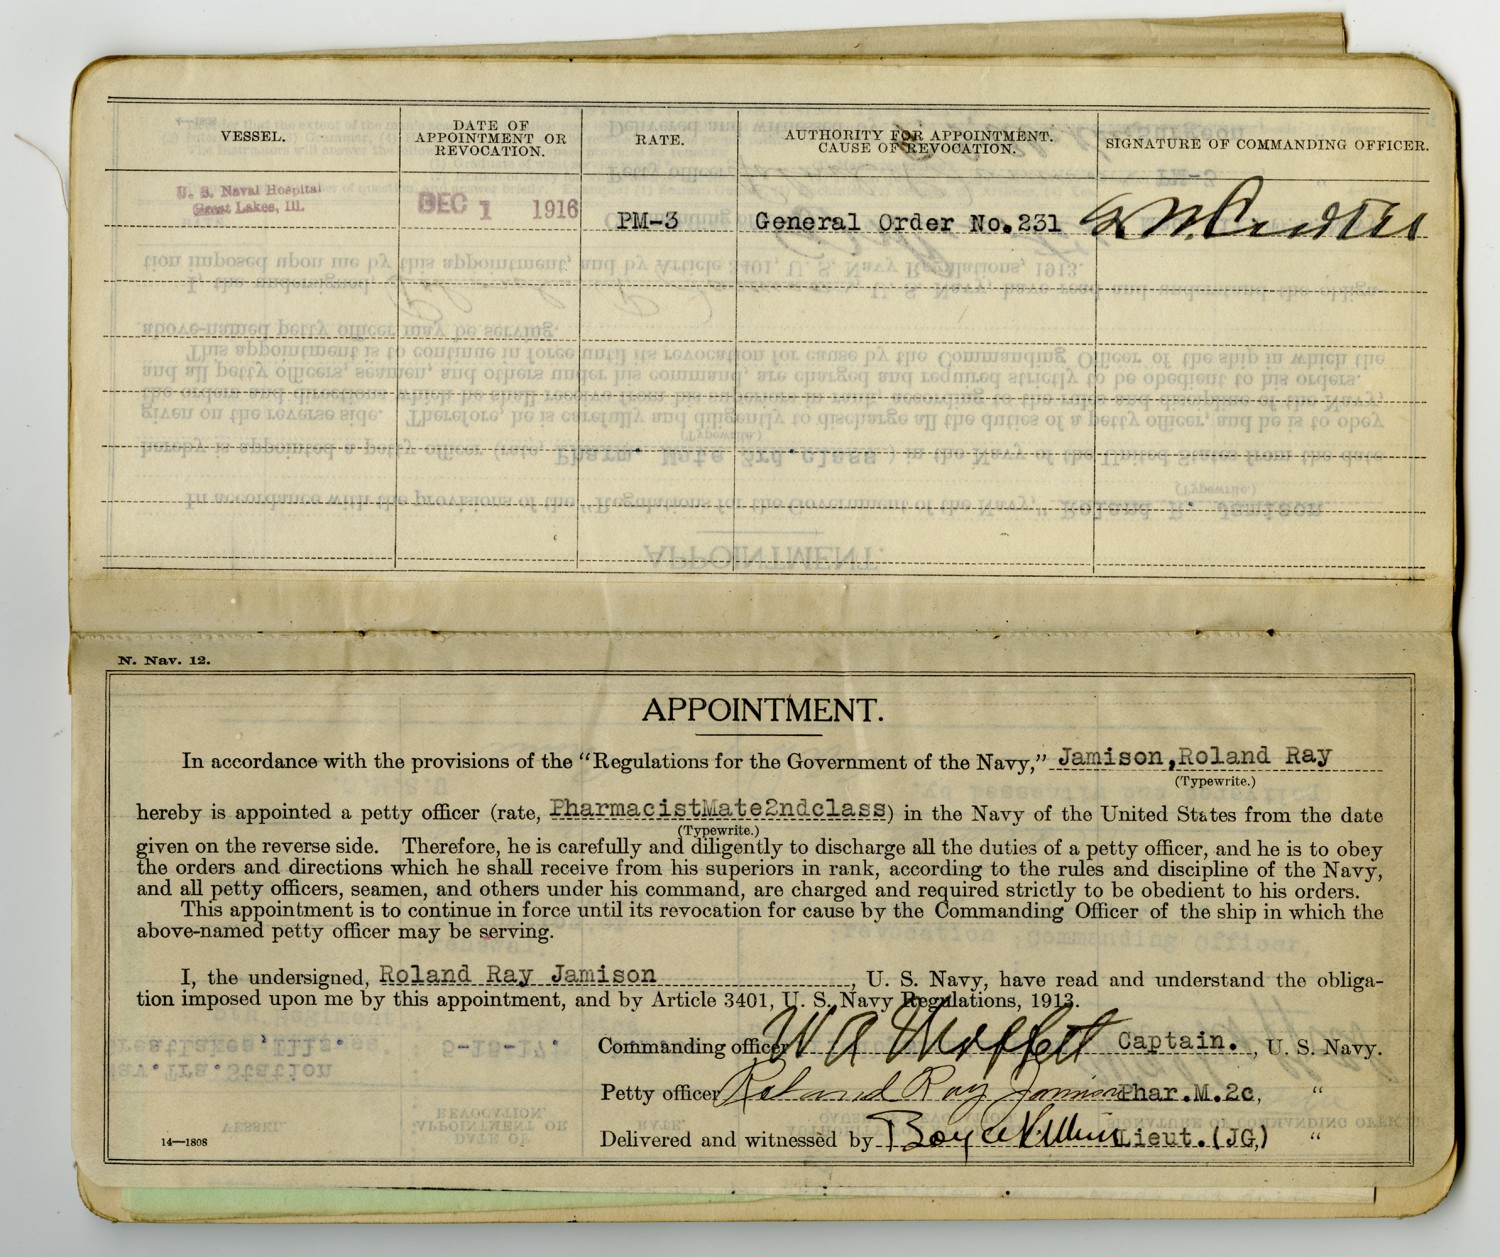 VESSEL.
DATE OF APPOINTMENT OR REVOCATION.
RATE.
AUTHORITY FOR APPOINTMENT. CAUSE OF REVOCATION.
SIGNATURE OF COMMANDING OFFICER.
U. S. Naval Hospital
Great Lakes, Ill.
DEC 1 1916
PM-3
General Order No.231
N. Nav. 12.
APPOINTMENT.
In accordance with the provisions of the “Regulations for the Government of the Navy,” Jamison,Roland Ray
(Typewrite.)
hereby is appointed a petty officer (rate, PharmacistMate2ndclass) in the Navy of the United States from the date
(Typewrite.)
given on the reverse side. Therefore, he is carefully and diligently to discharge all the duties of a petty officer, and he is to obey
the orders and directions which he shall receive from his superiors in rank, according to the rules and discipline of the Navy,
and all petty officers, seamen, and others under his command, are charged and required strictly to be obedient to his orders.
This appointment is to continue in force until its revocation for cause by the Commanding Officer of the ship in which the
above-named petty officer may be serving.
I, the undersigned, Roland Ray Jamison, U. S. Navy, have read and understand the obliga-
tion imposed upon me by this appointment, and by Article 3401, U. S. Navy Regulations, 1913.
Commanding officer W A Moffett Captain. , U. S. Navy.
Petty officer Roland Ray Jamison Phar.M.2c, “
Delivered and witnessed by Lieut.(JG,) “
14—1808